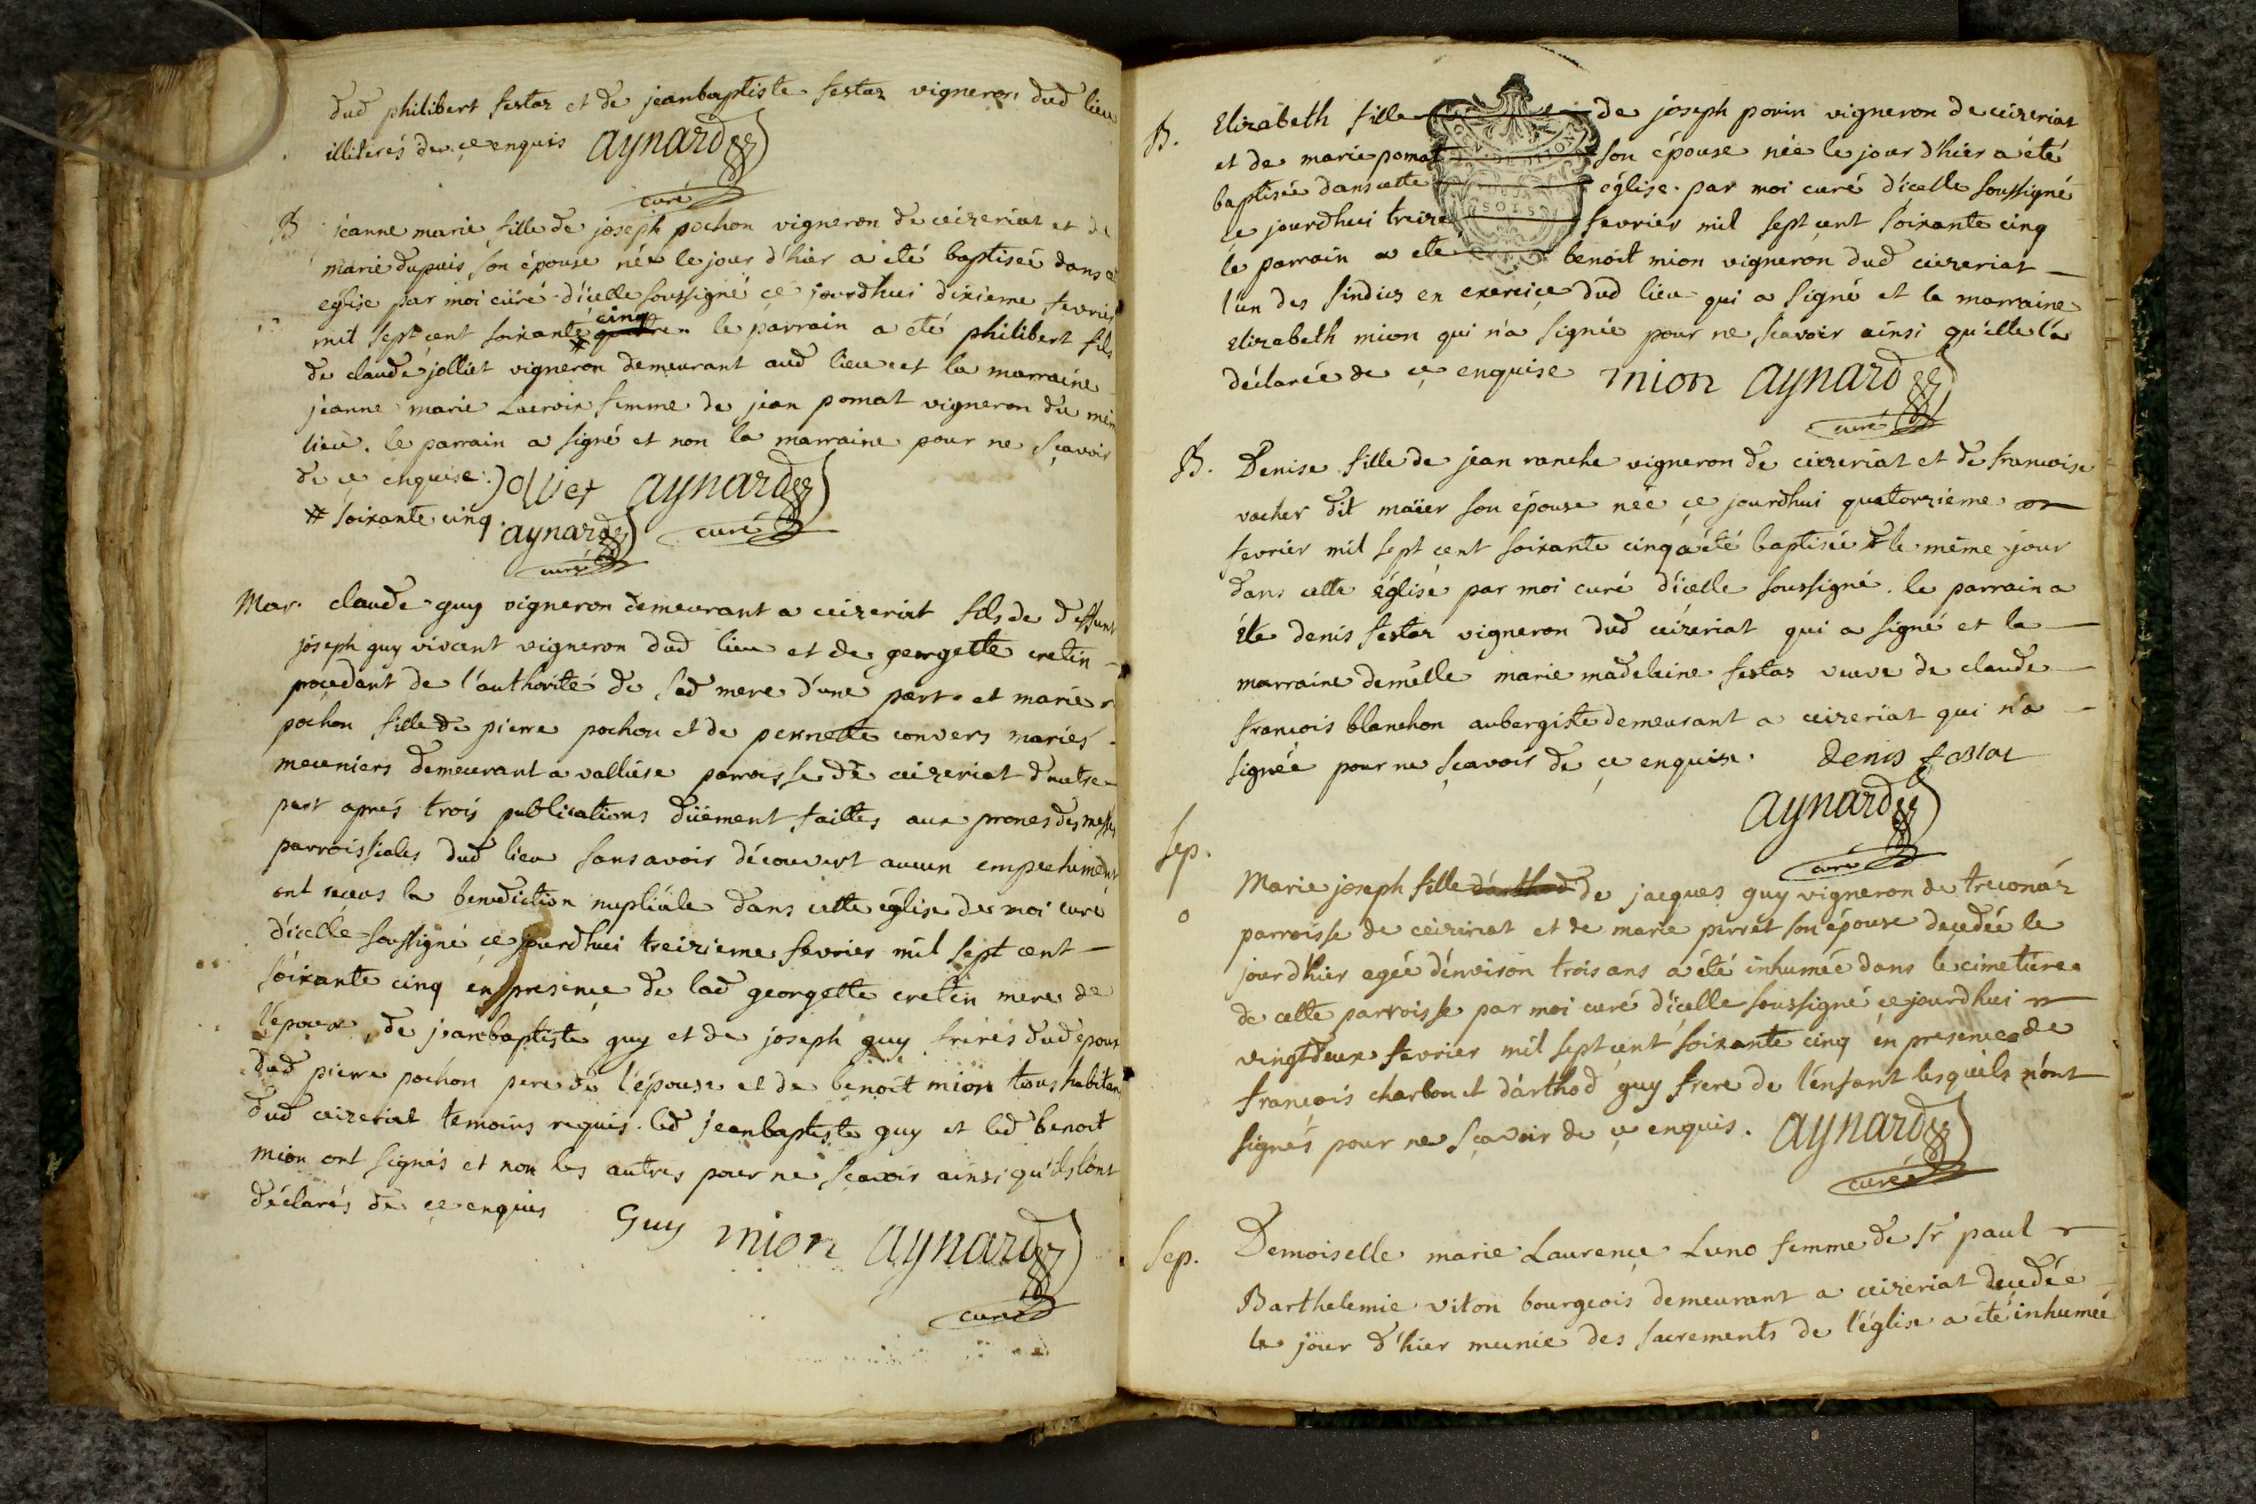 dud philibert festaz et de jeanbaptiste festaz vigneron dud lieu
illiterés de ce enquis aynard
curé
B jeanne marie fille de joseph pochon vigneron de ceizeriat et de
marie dupuis son épouse née le jour d'hier a été baptiseé dans
église par moi curé d'icelle soussigné ce jourdhui dixieme fevrier
cinq
mil sept cent soixante # le parrain a eté philibert fils
de claude jolliet vigneron demeurant aud lieu et la marraine
jeanne marie Lacroix femme de jean pomat vigneron du
lieu. le parrain a signé et non la marraine pour ne sçavoir
de ce enquise. Jolliet aynard
curé
# soixante cinq. aynard
curé
Mar. claude guy vigneron demeurant a ceizeriat fils de deffunt
joseph guy vivant vigneron dud lieu et de georgette cretin
procedant de l'authorité de sad mere d'une part et marie
pochon fille de pierre pochon et de pernette convers mariés
meuniers demeurant a valliere parroisse de ceizeriat d'autre
part aprés trois publications düement faittes aux prones des messes
parroissiales dud lieu sans avoir découvert aucun empechement
ont receus la benediction nuptiale dans cette église de moi curé
d'icelle soussigné ce jourdhui treizieme fevrier mil sept cent
soixante cinq en presence de lad georgette cretin mere de
l'époux, de jeanbaptiste guy et de joseph guy freres dud epoux
dud pierre pochon pere de l'épouse et de benoit mion tous habitan
dud ceizeriat temoins requis. led jeanbaptiste guy et led benoit
mion ont signés et non les autres pour ne sçavoir ainsi qu'ils l'ont
déclarés de ce enquis
Guy mion aynard
curé
B. Elizabeth fille de joseph porin vigneron de ceizeriat
et de marie pomat son épouse née le jour d'hier a été
baptisée dans cette église par moi curé d'icelle soussigné
ce jourdhui treize fevrier mil sept cent soixante cinq
le parrain a eté benoit mion vigneron dud ceizeriat
l'un des sindics en exercice dud lieu qui a signé et la marraine
Elizabeth mion qui n'a signée pour ne scavoir ainsi qu'elle l'a
déclarée de ce enquise mion aynard
curé
B. Denise fille de jean ranche vigneron de ceizeriat et de francoise
vacher dit maïer son épouse née ce jourdhui quatorzieme
fevrier mil sept cent soixante cinq a été baptisée le même jour
dans cette église par moi curé d'icelle soussigné. le parrain a
été denis festaz vigneron dud ceizeriat qui a signé et la
marraine demelle marie madelaine festaz veuve de claude
francois blanchon aubergiste demeurant a ceizeriat qui n'a
signée pour ne sçavoir de ce enquise. Denis fastaz
aynard
curé
sep.
Marie joseph fille darthod de jacques guy vigneron de treconaz
parroisse de ceizeriat et de marie perret son épouse decedée le
jourdhier agée d'environ trois ans a été inhumée dans le cimetiere
de cette parroisse par moi curé d'icelle soussigné ce jourdhui
vingtdeux fevrier mil sept cent soixante cinq en presence de
françois charbon et d'arthod guy frere de l'enfant lesquels n'ont
signés pour ne sçavoir de ce enquis. aynard
curé
sep. Demoiselle marie Laurence Luno femme de sr paul
Barthelemie viton bourgeois demeurant a ceizeriat decedée
le jour d'hier munie des sacrements de l'église a été inhumeé